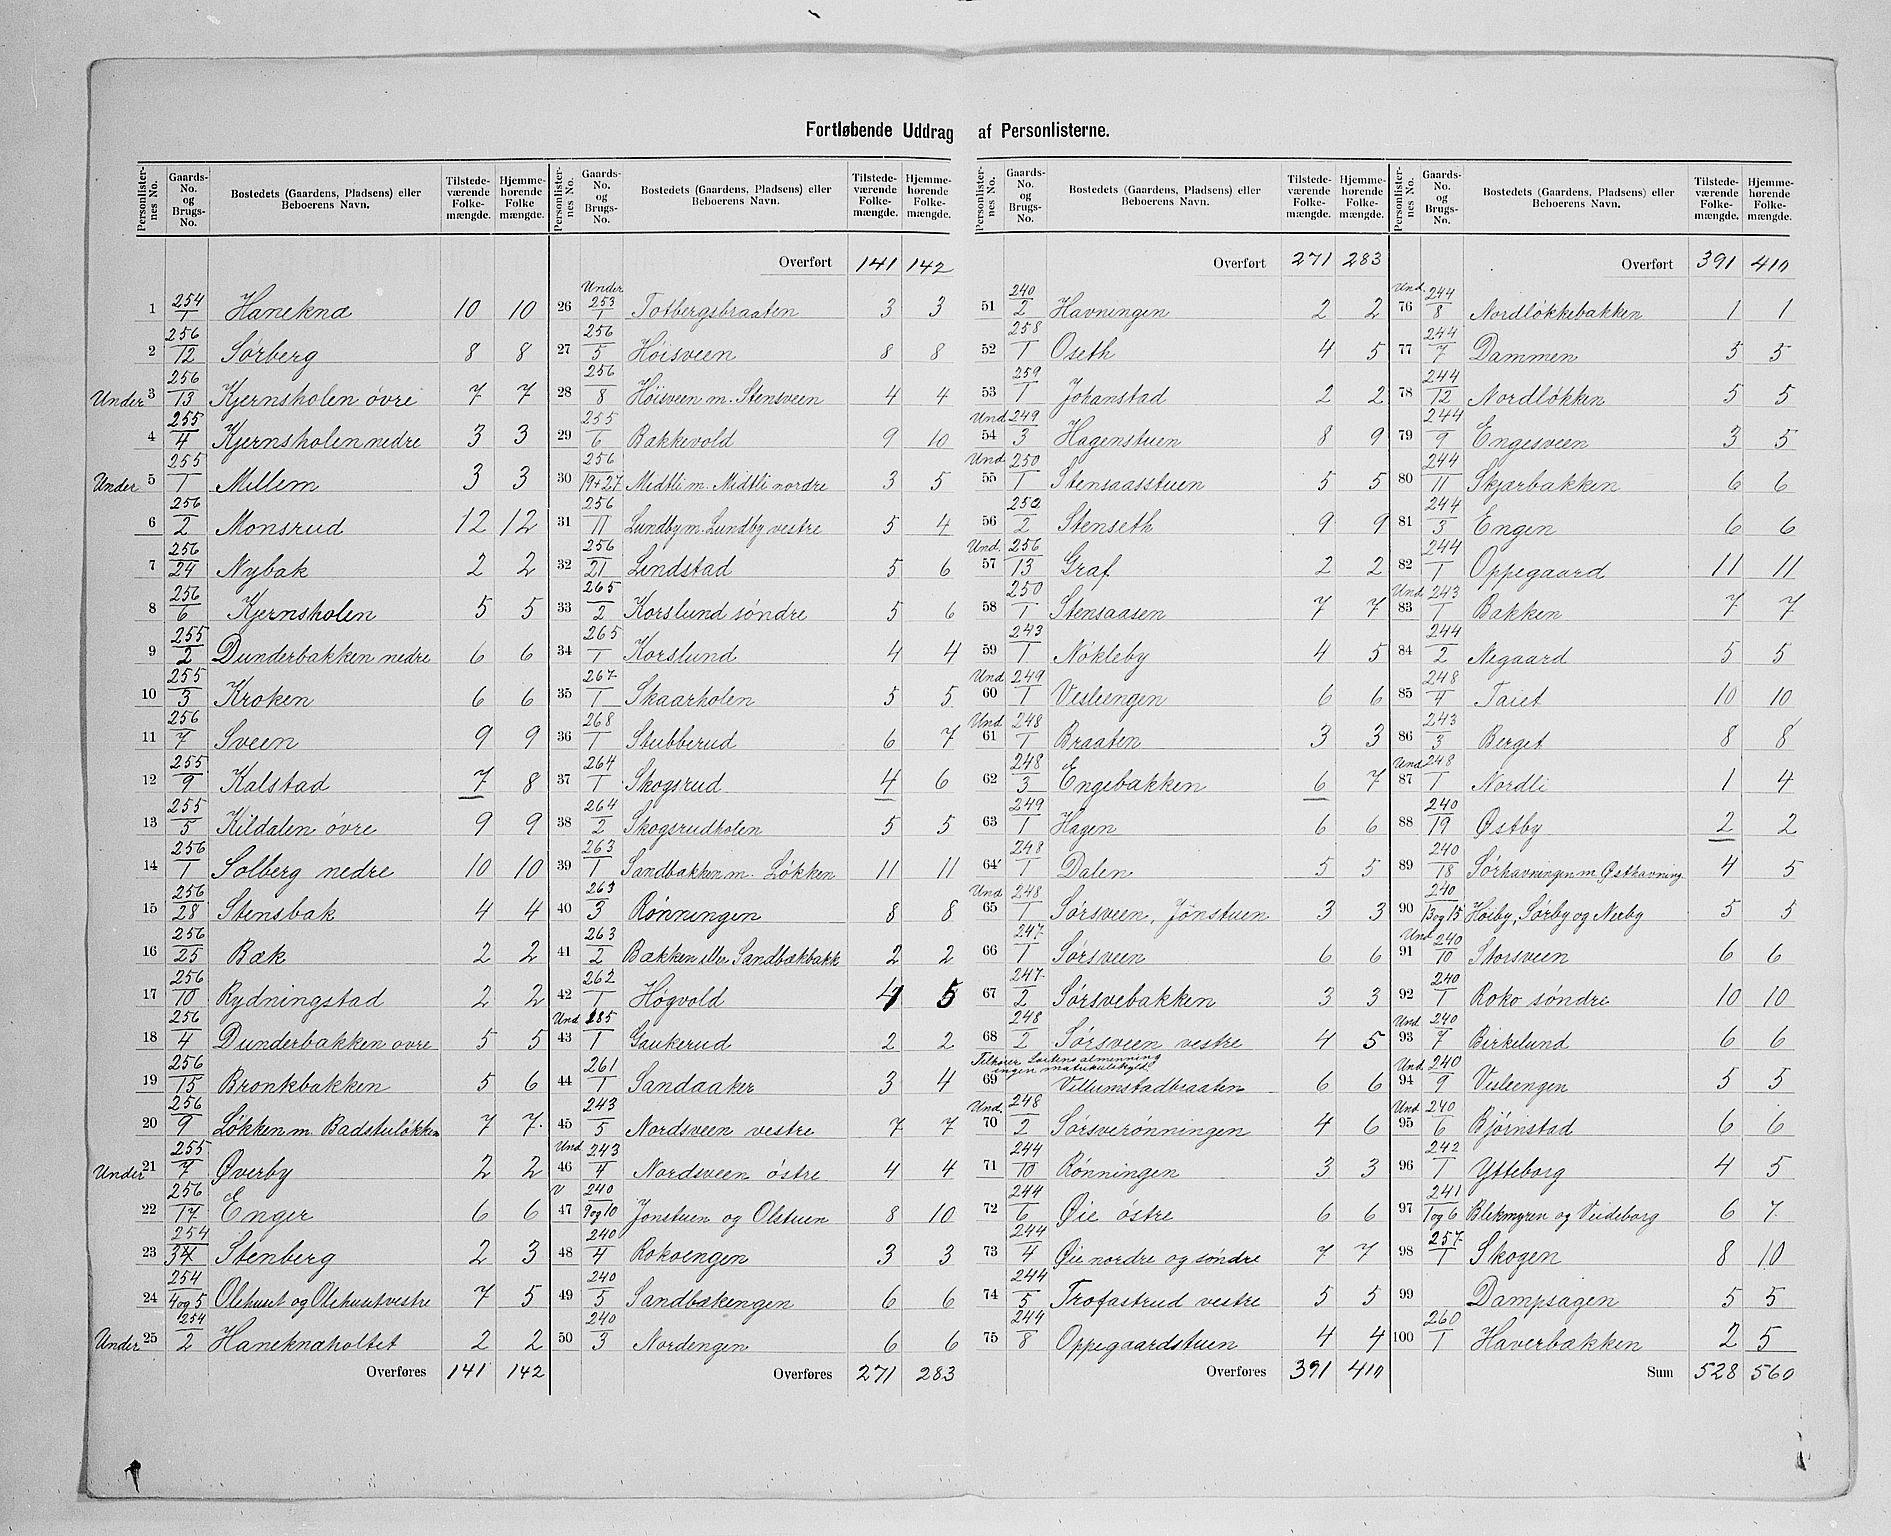 Fortløbende Uddrag af Personlisterne.
Personlister-nes No. | Gaards-No. og Brugs-No. | Bostedets (Gaardens, Pladsens) eller Beboerens Navn. | Tilstede-værende Folke-mængde. | Hjemme-hørende Folke mængde.
1 254/1 Haneknæ 10 10
2 256/12 Sørberg 8 8
Under 3 256/13 Kjernsholen øvre 7 7
4 255/4 Kjernsholen nedre 3 3
Under 5 255/1 Mellem 3 3
6 256/2 Monsrud 12 12
7 256/24 Nybak 2 2
8 256/6 Kjernsholen 5 5
9 255/2 Dunderbakken nedre 6 6
10 255/3 Kroken 6 6
11 256/7 Sveen 9 9
12 255/9 Kalstad 7 8
13 255/5 Kildalen øvre 9 9
14 256/1 Solberg nedre 10 10
15 256/28 Stensbak 4 4
16 256/25 Bæk 2 2
17 256/10 Rydningstad 2 2
18 256/4 Dunderbakken ovre 5 5
19 256/15 Bronkbakken 5 6
20 256/9 Løkken m. Badstuløkken 7 7
Under 21 255/7 Øverby 2 2
22 256/17 Enger 6 6
23 254/3 Stenberg 2 3
24 254/4 og 5 Olehuset og Olehuset vestre 7 5
Under 25 254/2 Haneknæholtet 2 2
Overføres 141 142
Personlister-nes No. | Gaards-No. og Brugs-No. | Bostedets (Gaardens, Pladsens) eller Beboerens Navn. | Tilstede-værende Folke-mængde. | Hjemme-hørende Folke-mængde.
Overført 141 142
26 Under 253/1 Totbergsbraaten 3 3
27 256/5 Høisveen 8 8
28 256/8 Høisveen m. Stensveen 4 4
29 255/6 Bakkevold 9 10
30 256/19+27 Midtli m. Midtli nordre 3 5
31 256/11 Lundby m. Lundby vestre 5 4
32 256/21 Lendstad 5 6
33 265/2 Korslund søndre 5 6
34 265/1 Korslund 4 4
35 267/1 Skaarholen 5 5
36 268/1 Stubberud 6 7
37 264/1 Skogsrud 4 6
38 264/2 Skogsrudholen 5 5
39 263/1 Sandbakken m. Løkken 11 11
40 263/3 Rønningen 8 8
41 263/2 Bakken eller Sandbækbakk 2 2
42 262/1 Høgvold 4 5
Und 43 /1 Gaukerud 2 2
44 261/1 Sandaaker 3 4
45 243/5 Nordsveen vestre 7 7
Und 46 243/4 Nordsveen östre 4 4
v 47 240/9 og 10 Jonstuen og Olstuen 8 10
48 240/4 Rokoengen 3 3
49 240/5 Sandbækengen 6 6
50 240/3 Nordengen 6 6
Overføres 271 283
Personlister-nes No. | Gaards-No. og Brugs-No. | Bostedets (Gaardens, Pladsens) eller Beboerens Navn. | Tilstede-værende Folke-mængde. | Hjemme-hørende Folke-mængde.
Overført 271 283
51 240/2 Havningen 2 2
52 258/1 Oseth 4 5
53 259/1 Johanstad 2 2
Und 54 249/3 Hagenstuen 8 9
Und 55 250/1 Stensaasstuen 5 5
56 250/2 Stenseth 9 9
Und. 57 256/13 Graf 2 2
58 250/1 Stensaasen 7 7
59 243/1 Nökleby 4 5
Und 60 249/1 Vesleengen 6 6
Und 61 248/1 Braaten 3 3
62 248/3 Engebakken 6 7
63 249/1 Hagen 6 6
64 248/1 Dalen 5 5
Und 65 248/1 Sørsveen, Jonstuen 3 3
66 247/1 Sørsveen 6 6
67 247/2 Sørsvebakken 3 3
68 248/2 Sørsveen vestre 4 5
Tilhører Løitens almenning ingen matrikulskyld
69 Villumstadbraaten 6 6
Und. 70 248/2 Sørsverønningen 4 6
71 244/10 Rønningen 3 3
72 244/6 Øie östre 6 6
73 244/4 Øie nordre og søndre 7 7
74 244/5 Trofastrud vestre 5 5
75 244/8 Oppegaardstuen 4 4
Overføres 391 410
Personlister-nes No. | Gaards-No. og Brugs-No. | Bostedets (Gaardens, Pladsens) eller Beboerens Navn. | Tilstede-værende Folke-mængde. | Hjemme-hørende Folke-mængde.
Overført 391 410
Und. 76 244/8 Nordløkkebakken 1 1
77 244/7 Dammen 5 5
78 244/12 Nordløkken 5 5
79 244/9 Engesveen 3 5
80 244/11 Skjærbakken 6 6
81 244/3 Engen 6 6
82 244/1 Oppegaard 11 11
Und 83 243/1 Bakken 7 7
84 244/2 Negaard 5 5
85 248/4 Taiet 10 10
86 243/3 Berget 8 8
Und 87 248/1 Nordli 1 4
88 240/19 Østby 2 2
89 240/18 Sørhavningen m. Østhavning 4 5
90 240/13 og 15 Høiby, Sørby og Nerby 5 5
Und 91 240/10 Storsveen 6 6
92 240/1 Roko søndre 10 10
Und 93 240/7 Birkelund 6 6
Und 94 240/9 Vesleengen 5 5
Und 95 240/6 Bjørnstad 6 6
96 242/1 Ytteborg 4 5
97 241/1 og 6 Blekmyren og Veideborg 6 7
98 257/1 Skogen 8 10
99 Dampsagen 5 5
100 260/1 Haverbakken 2 5
Sum 528 560